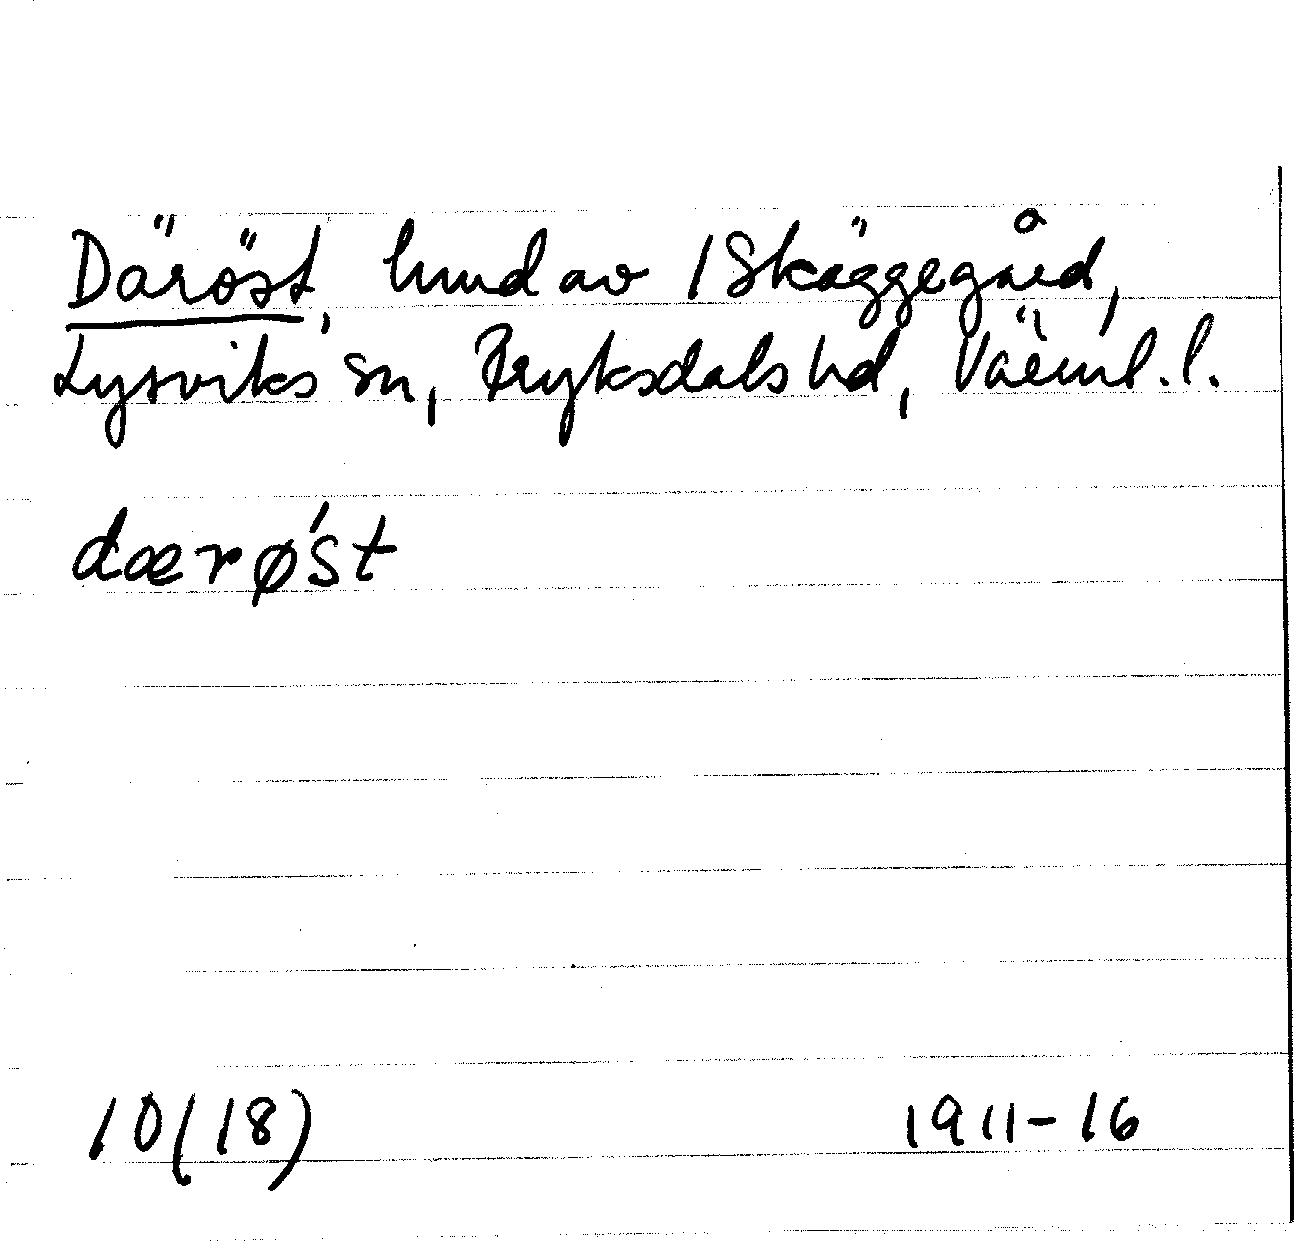 Däröst, lund av 1 Skäggegård,
Lysviks sn, Fryksdals hd, Värml. l.
dærø´st
10(18) 1911-16